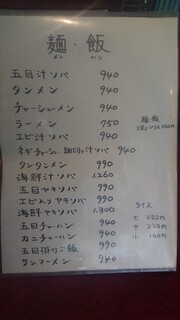 麺・飯
メン ハン
五目汁ソバ 940
タンメン 940
チャーシューメン 940
ラーメン 750
エビ汁ソバ 940
ネギチャーシュー細切り汁ソバ 940
タンタンメン 990
海鮮汁ソバ 1,260
五目ヤキソバ 990
エビ入リヤキソバ 990
海鮮ヤキソバ 1,300
五目チャーハン 940
カニチャーハン 990
五目掛けご飯 990
サンマーメン 940
麺・飯
ライス
大 280円
中 220円
小 160円